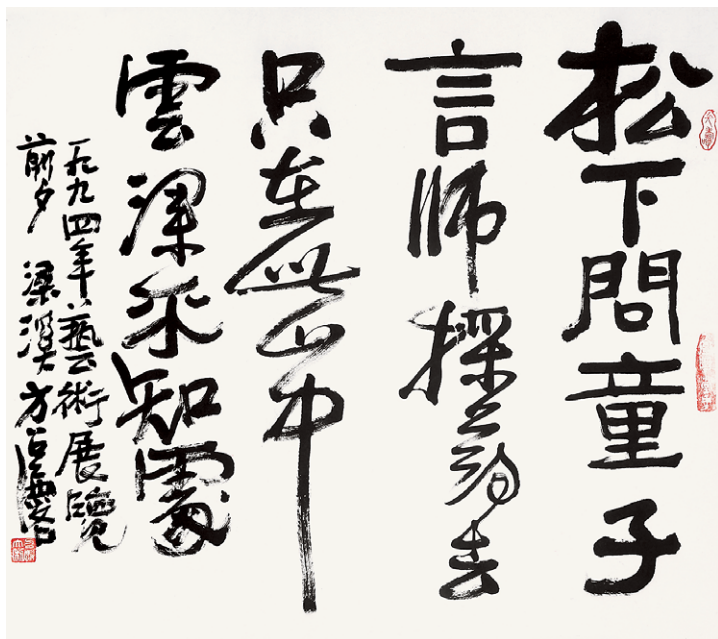 松下問童子
言師採藥去
只在此山中
雲深不知處
一九九四年藝術展覽
前夕 梁溪方召麐